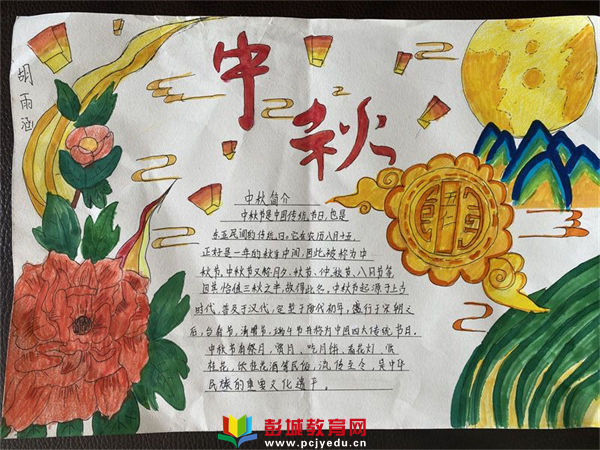 胡雨涵
中秋
中秋简介
中秋节是中国传统节日,也是
东亚民间的传统日,它在农历八月十五,
正好是一年的秋季中间,因此被称为中
秋节,中秋节又称月夕、秋节、仲秋节、八月节等
因其恰值三秋之半,故得此名。中秋节起源于上古
时代,普及于汉代,定型于唐代初年,盛行于宋朝之
后,与春节、清明节、端午节并称为中国四大传统节日。
中秋节有祭月、赏月、吃月饼、看花灯、赏
桂花、饮桂花酒等民俗,流传至今,是中华
民族的重要文化遗产。
彭城教育网
www.pcjyedu.cn